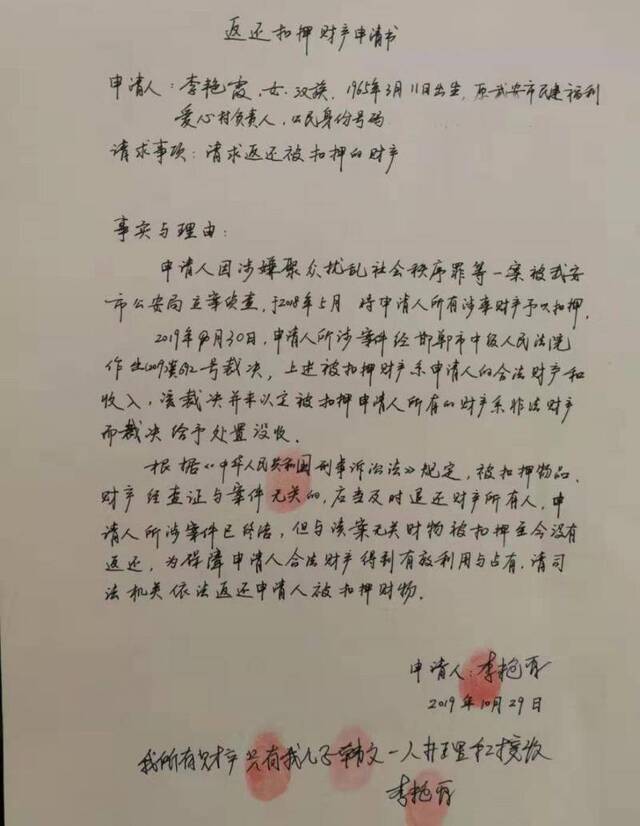 返还扣押财产申请书
申请人：李艳霞，女，汉族，1965年3月11日出生，原武安市民建福利
爱心村负责人，公民身份号码
请求事项：请求返还被扣押的财产
事实与理由：
申请人因涉嫌聚众扰乱社会秩序罪等一案被武安
市公安局立案侦查，于2018年5月 将申请人所有涉案财产予以扣押。
2019年 月30日，申请人所涉案件经邯郸市中级人民法院
作出 号裁决，上述被扣押财产系申请人的合法财产和
收入，该裁决并未认定被扣押申请人所有的财产系非法财产
而裁决给予处置没收。
根据《中华人民共和国刑事诉讼法》规定，被扣押物品、
财产经查证与案件无关的，应当及时退还财产所有人，申
请人所涉案件已终结，但与该案无关财物被扣押至今没有
返还，为保障申请人合法财产得到有效利用与占有，请司
法机关依法返还申请人被扣押财物。
申请人：李艳霞
2019年10月29日
我所有财产只有我儿子 文一人 接收
李艳霞